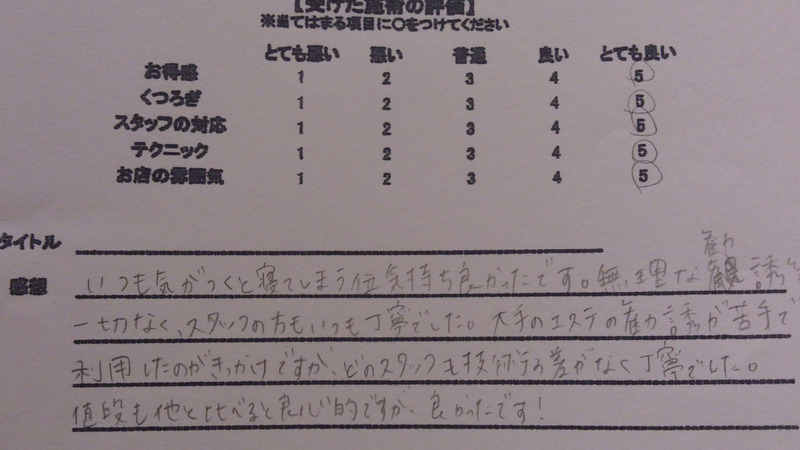 【受けた施術の評価】
※当てはまる項目に○をつけてください
とても悪い 悪い 普通 良い とても良い
お得感 1 2 3 4 5
くつろぎ 1 2 3 4 5
スタッフの対応 1 2 3 4 5
テクニック 1 2 3 4 5
お店の雰囲気 1 2 3 4 5
タイトル
感想 いつも気がつくと寝てしまう位気持ち良かったです。無理な勧誘も
一切なく、スタッフの方もいつも丁寧でした。大手のエステの勧誘が苦手で
利用したのがきっかけですが、どのスタッフも技術の差がなく丁寧でした。
値段も他と比べると良心的ですが、良かったです!